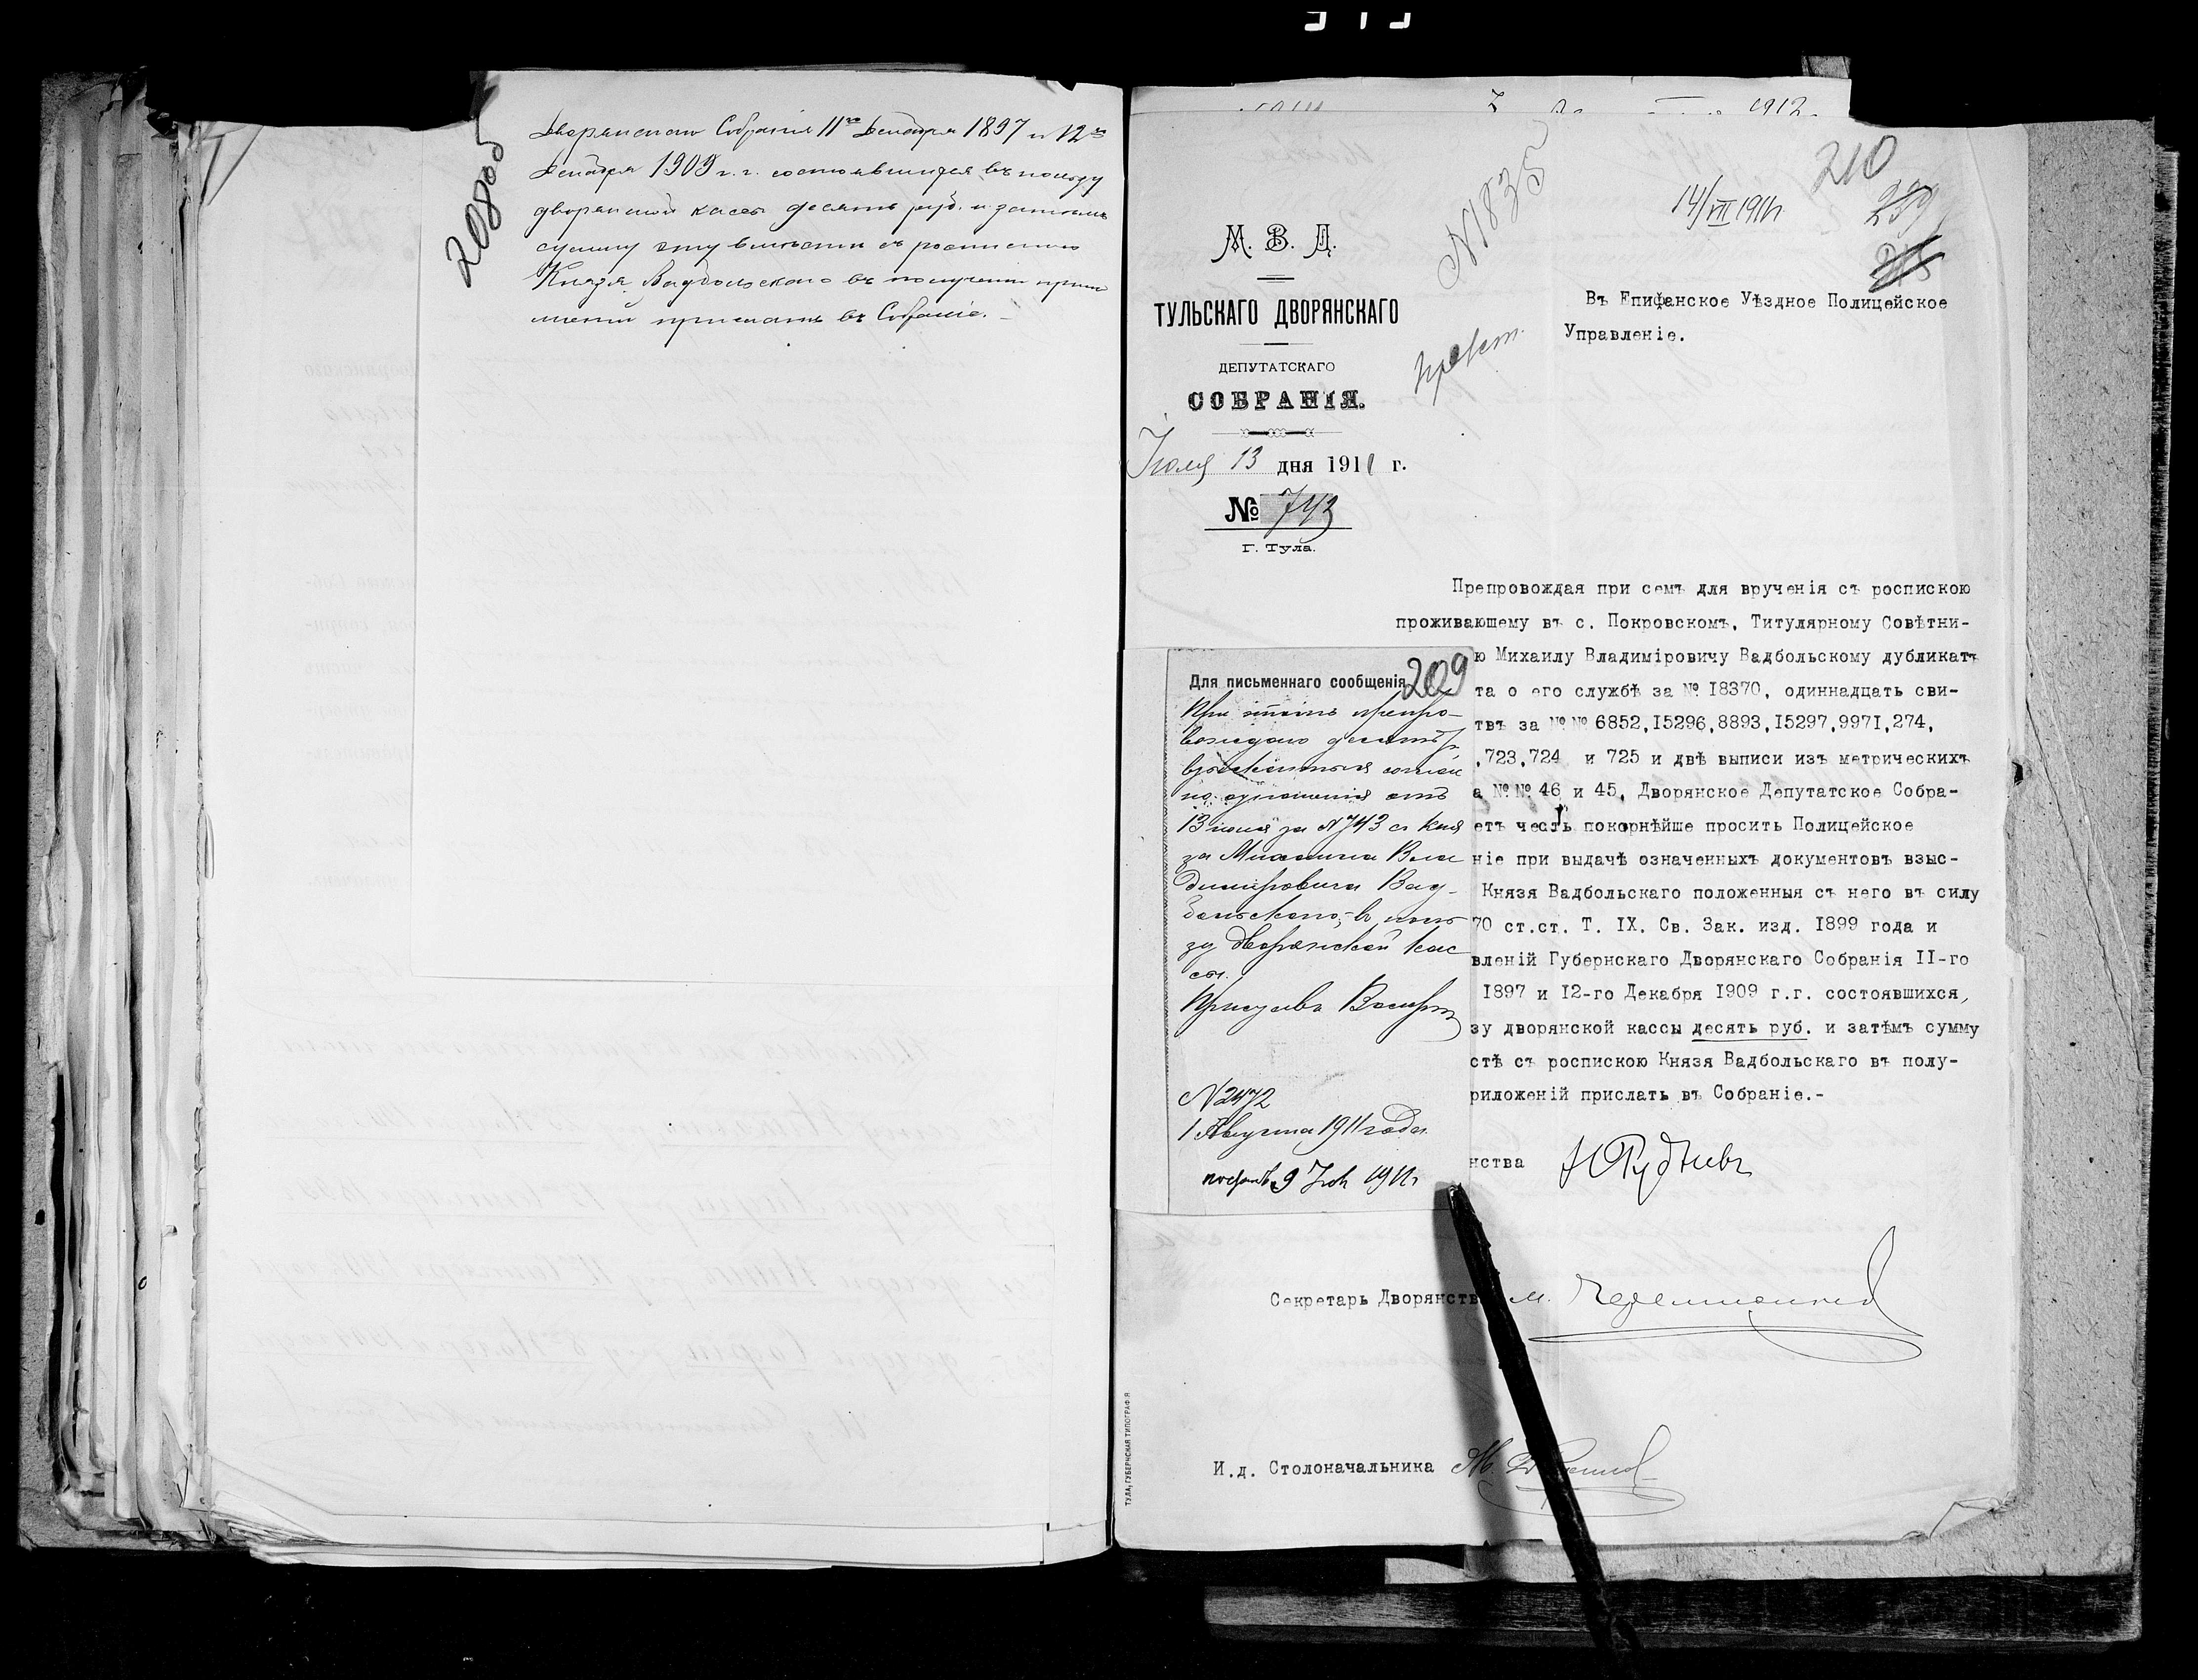 208об
Дворянскаго Собранія 11го Декабря 1897 и 12го
Декабря 1909 г.г. состоявшихся въ пользу
дворянской кассы десять руб. и затѣмъ
сумму эту вмѣстѣ съ роспискою
Князя Вадбольскаго въ полученіи прило
женій прислать въ Собраніе.
1912
210
14/VII 1911г.
239
N1835
М. В. Д.
ТУЛЬСКАГО ДВОРЯНСКАГО
ДЕПУТАТСКАГО
СОБРАНІЯ.
Іюля 13 дня 1911 г.
№ 743
Г. Тула.
Въ Епифанское Уѣздное Полицейское
Управленіе.
Препровождая при семъ для врученія съ роспискою
проживающему въ с. Покровскомъ, Титулярному Совѣтни-
ю Михаилу Владиміровичу Вадбольскому дубликатъ
та о его службѣ за № 18370, одиннадцать сви-
твъ за №№ 6852,15296,8893,15297,9971,274,
,723,724 и 725 и двѣ выписи изъ метрическихъ
а №№ 46 и 45, Дворянское Депутатское Собра-
етъ честь покорнѣйше просить Полицейское
ніе при выдачѣ означенныхъ документовъ взыс-
Князя Вадбольскаго положенныя съ него въ силу
70 ст.ст. Т. IX. Св. Зак. изд. 1899 года и
вленій Губернскаго Дворянскаго Собранія II-го
1897 и 12-го Декабря 1909 г.г. состоявшихся,
зу дворянской кассы десять руб. и затѣмъ сумму
стѣ съ роспискою Князя Вадбольскаго въ полу-
риложеній прислать въ Собраніе.-
нства Н Рудневъ
Секретарь Дворянств М.
И.д. Столоначальника
ТУЛА, ГУБЕРНСКАЯ ТИПОГРАФІЯ
209
Для письменнаго сообщенія
При этомъ препро-
вождаю десять р
взысканныя соглас
но отношенія отъ
13 іюля за N743 съ Кня
зя Михаила Вла
диміровича Вад-
больскаго, въ поль
зу дворянской кас
сы.
Приставъ
N2472
1 Августа 1911 года.
1911г